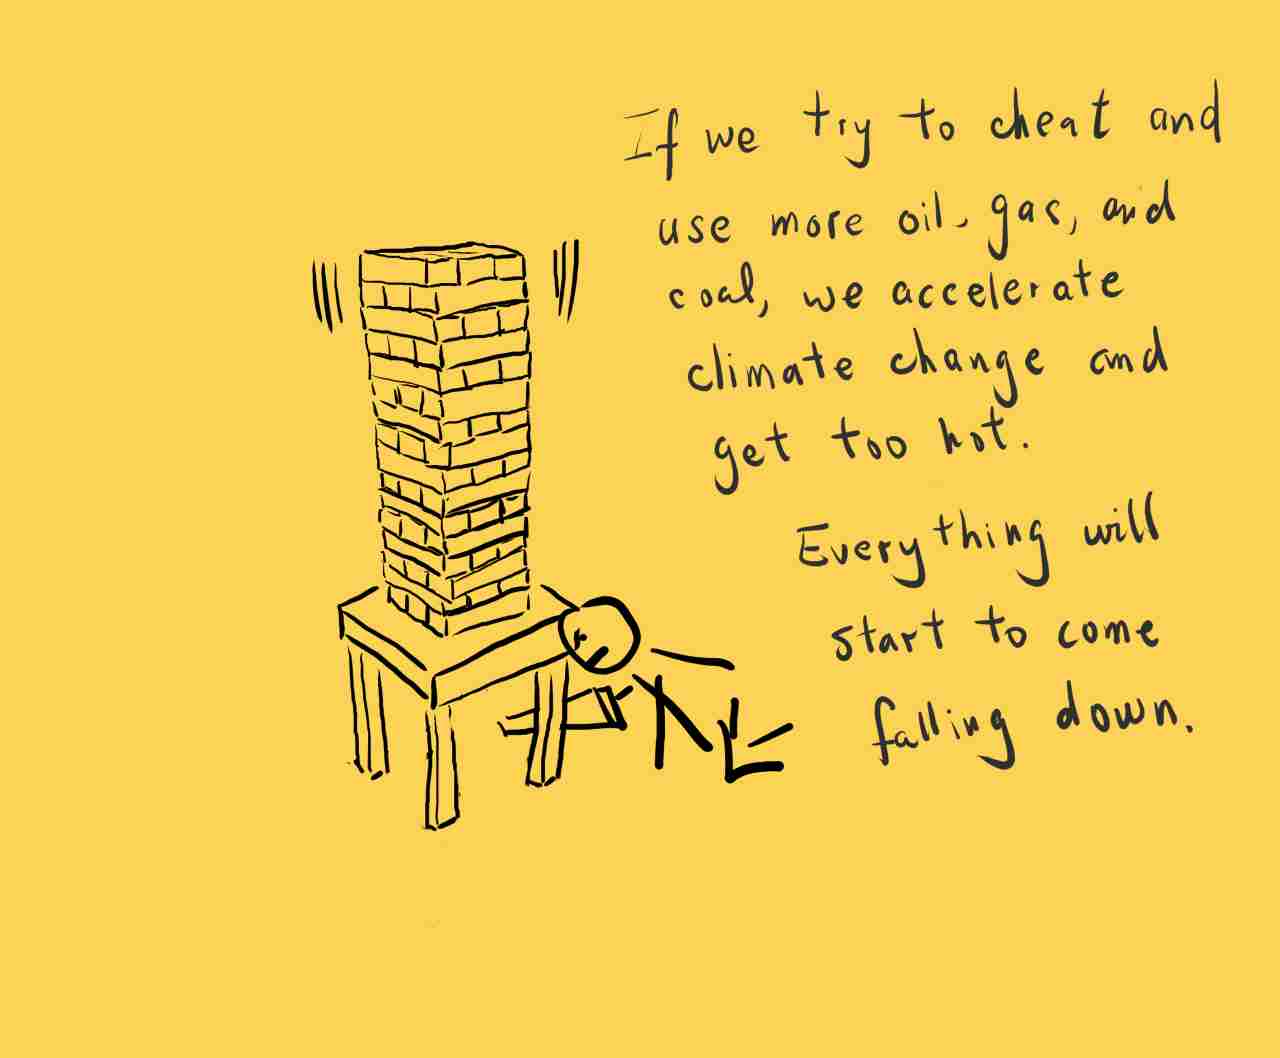 If we try to cheat and
use more oil, gas, and
coal, we accelerate
climate change and
get too hot.
Everything will
start to come
falling down.